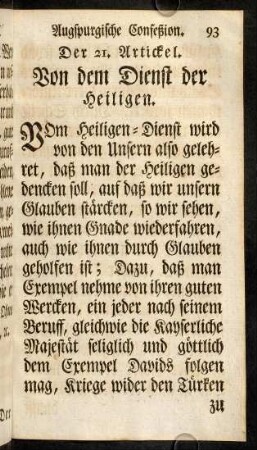 Augspurgische Confeßion. 93
Der 21. Artickel.
Von dem Dienst der
Heiligen.
VOm Heiligen-Dienst wird
von den Unsern also geleh-
ret, daß man der Heiligen ge-
dencken soll, auf daß wir unsern
Glauben stärcken, so wir sehen,
wie ihnen Gnade wiederfahren,
auch wie ihnen durch Glauben
geholfen ist; Dazu, daß man
Exempel nehme von ihren guten
Wercken, ein jeder nach seinem
Beruff, gleichwie die Kayserliche
Majestät seliglich und göttlich
dem Exempel Davids folgen
mag, Kriege wider den Türken
zu